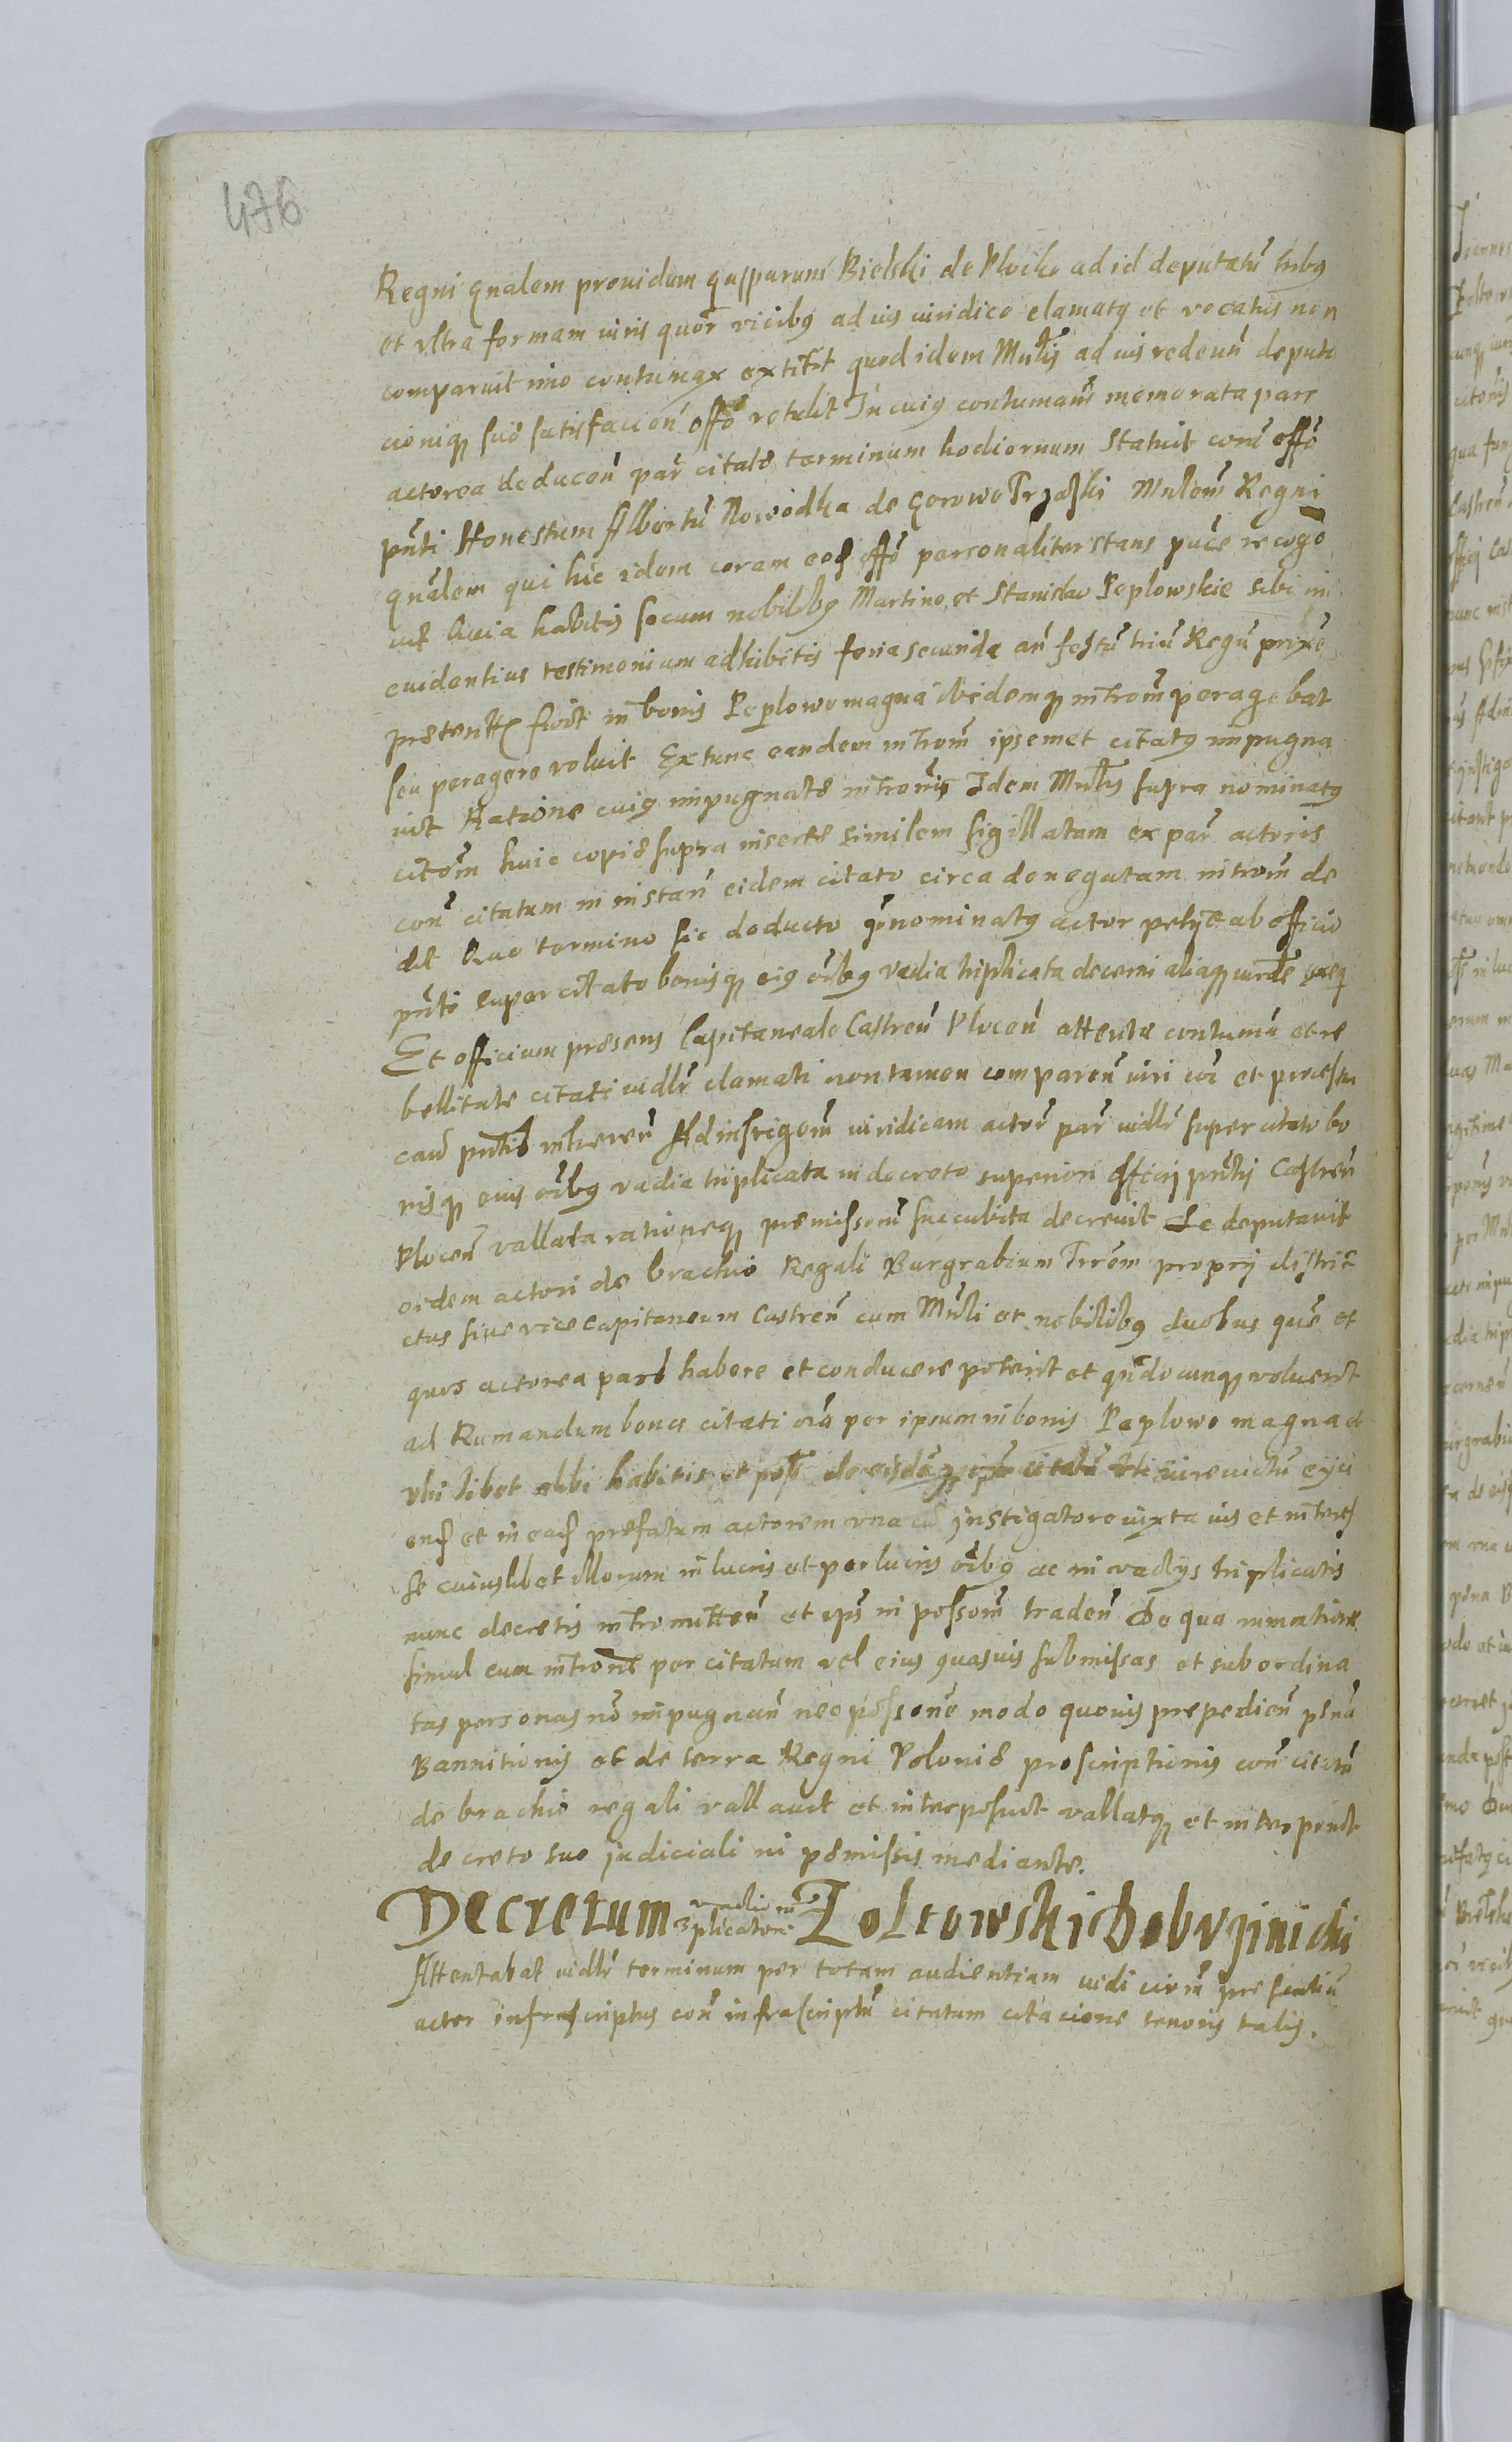 476
Regni gnalem prouidum gasparum Bielski de Plocko ad id deputatū tribȝ
et vltra formam iuris quor̄ vicibȝ ad ius iuridice clamatȝ et vocatus non
comparuit imo contumax extitit quod idem Mnlīs ad ius redeuñ deputa
cioniqȝ suæ satisfacieñ offō retulit In cuiȝ contumaciā memorata pars
actorea deduceñ par citatæ terminum hodiernum Statuit corā offō
pn̄ti Honestum Albertū Nowodka de Gorowo Trzaski Mnlem Regni
gnalem qui hic idem coram eod offō personaliter stans publice recogo
uit Quia habitis secum nobilibȝ Martino et Stanislao Peplowskie sibi in
euidentius testimonium adhibitis feria secunda añ festū triū Regū proxe
præterita fuit in bonis Peplowo magna ibidemqȝ introm̄ peragebat
seu peragere voluit Extunc eandem introm̄ ipsemet citatȝ impugna
uit Ratione cuiȝ impugnatæ intromīs Idem Mnlis supra nominatȝ
citom̄ huic copiæ supra insertæ similem sigillatam ex par actoris
con̄ citatum in instan̄ eidem citato circa denegatam introm̄ de
dit Quo termino sic deducto pn̄ominatȝ actor petijt ab officio
pn̄ti super citato bonisqȝ eiȝ oībȝ vadia triplicata decerni aliaqȝ iuris
Et officium præsens Capitaneale Castren̄ Plocen̄ attenta contumā et re
bellitate citati vidlr̄ clamati non tamen comparen̄ iuri coī et processu
caus̄ pn̄tis inheren̄ Ad instigom̄ iuridicam actor̄ par̄ vidlr̄ super citato bo
nisqȝ euis oībȝ vadia triplicata in decreto superiori officij pn̄tij Castren̄
Plocen̄ vallata rationeqȝ præmissorū succubita decreuit Et deputauit
eidem actori de brachio Regali Burgrabium Trrem̄ proprij distri
ctus siue vicecapitaneum Castren̄ cum Mnli et nobilibȝ duobus quē et
quos actorea pars habere et conducere poterit et qn̄docunqȝ voluerit
ad Rumandum bona citati oīa per ipsum in bonis Peplowo magna et
vbilibet alibi habitis et poss̄ de eisdē citatū iure victū eyci
end et in ead præfatum actorem vna cū instigatore iuxta ius et interes
se cuiuslibet illorum in lucris et perlucris oībȝ ac in vadijs triplicatis
nunc decretis intromitten̄ et ips̄ in possom̄ traden̄ De qua rumatione
simul cum introne per citatum vel eius quasuis submissas et subordina
tas personas nō impugnan̄ nec possone modo quouis prepedien̄ pæna
Bannitionis et de terra Regni Poloniæ proscriptionis con̄ citatū
de brachio regali vallauit et interposuit vallatqȝ et interponit
decreto suo judiciali in pæmissis mediante.
Decretum vadiorū 3plicatorū Zoltowski cū Dobrzinicki
Attentabat vidlr̄ terminum per totam audientiam
actor infrascriptus con̄ infrascriptū citatum citacione tenoris talis.